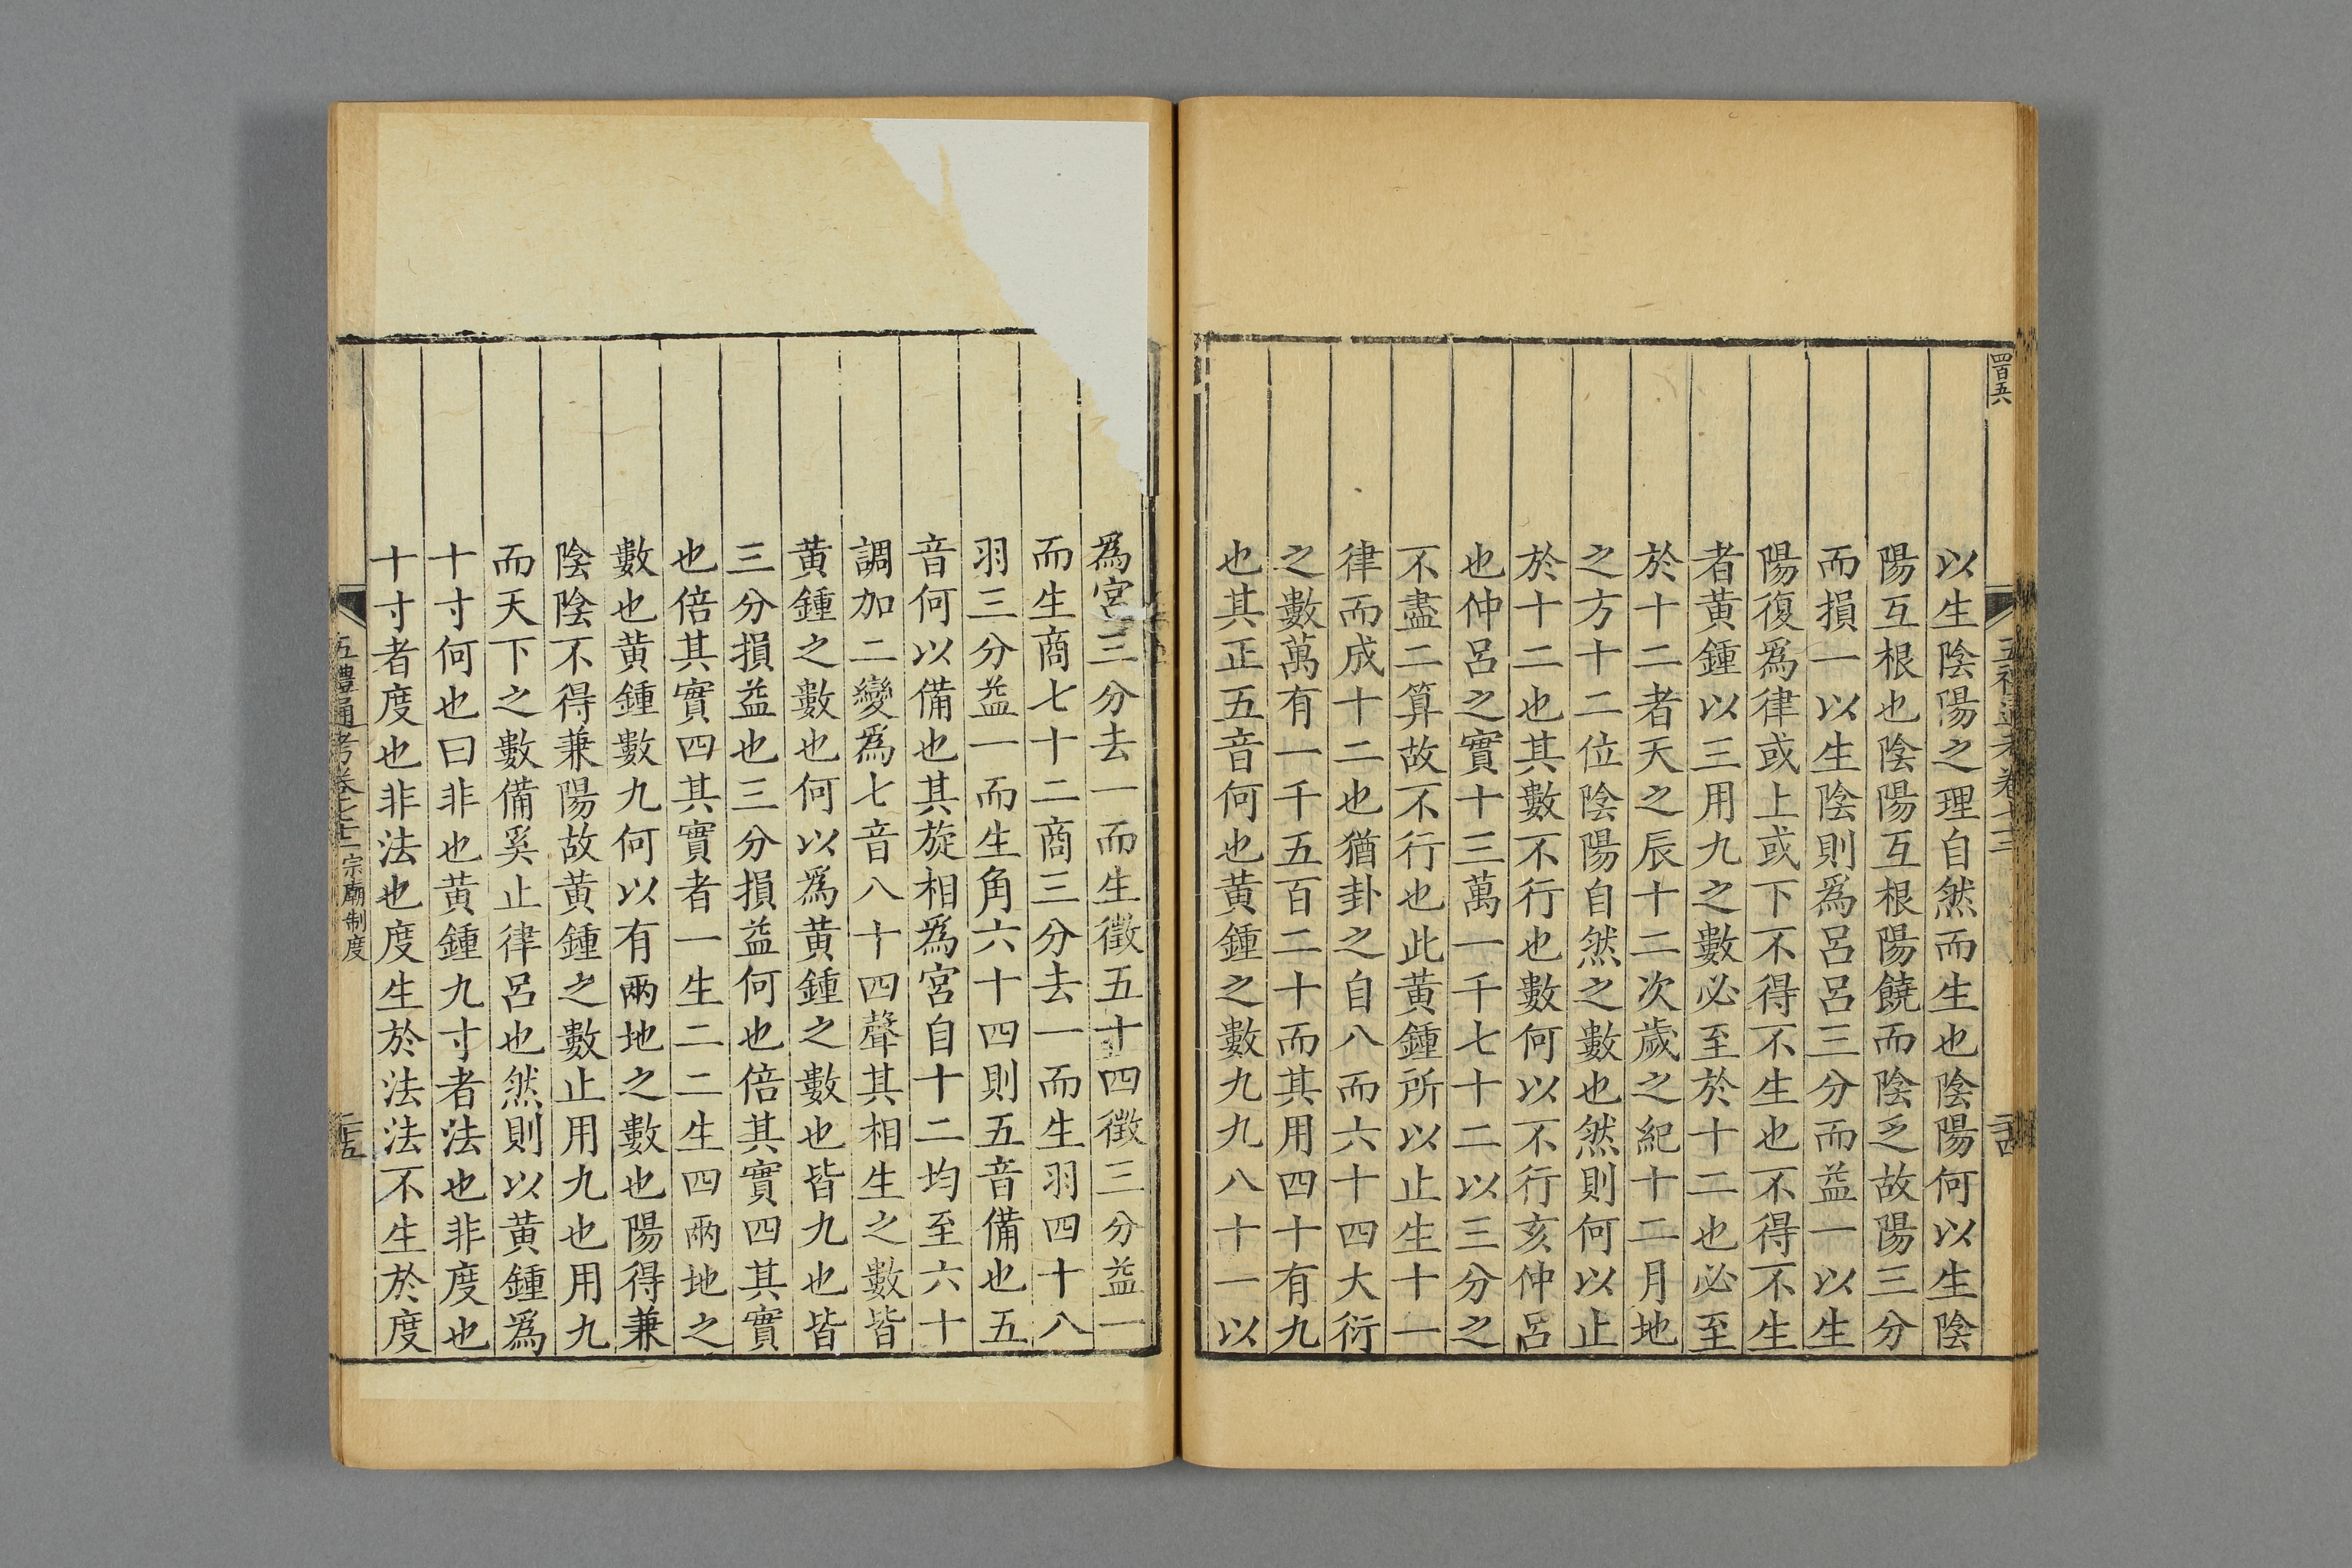 四百五六
五禮通考卷七十三
以生陰陽之理自然而生也陰陽何以生陰
陽互根也陰陽互根陽饒而陰乏故陽三分
而損一以生陰則爲呂呂三分而益一以生
陽復爲律或上或下不得不生也不得不生
者黄鍾以三用九之數必至於十二也必至
於十二者天之辰十二次歲之紀十二月地
之方十二位陰陽自然之數也然則何以止
於十二也其數不行也數何以不行亥仲呂
也仲呂之實十三萬一千七十二以三分之
不盡二算故不行也此黄鍾所以止生十一
律而成十二也猶卦之自八而六十四大衍
之數萬有一千五百二十而其用四十有九
也其正五音何也黄鍾之數九九八十一以
爲宮三分去一而生徵五十四徵三分益一
而生商七十二商三分去一而生羽四十八
羽三分益一而生角六十四則五音備也五
音何以備也其旋相爲宮自十二均至六十
調加二變爲七音八十四聲其相生之數皆
黄鍾之數也何以爲黄鍾之數也皆九也皆
三分損益也三分損益何也倍其實四其實
也倍其實四其實者一生二二生四兩地之
數也黄鍾數九何以有兩地之數也陽得兼
陰陰不得兼陽故黄鍾之數止用九也用九
而天下之數備奚止律呂也然則以黄鍾爲
十寸何也曰非也黄鍾九寸者法也非度也
十寸者度也非法也度生於法法不生於度
五禮通考卷七十三 宗廟制度
二十五